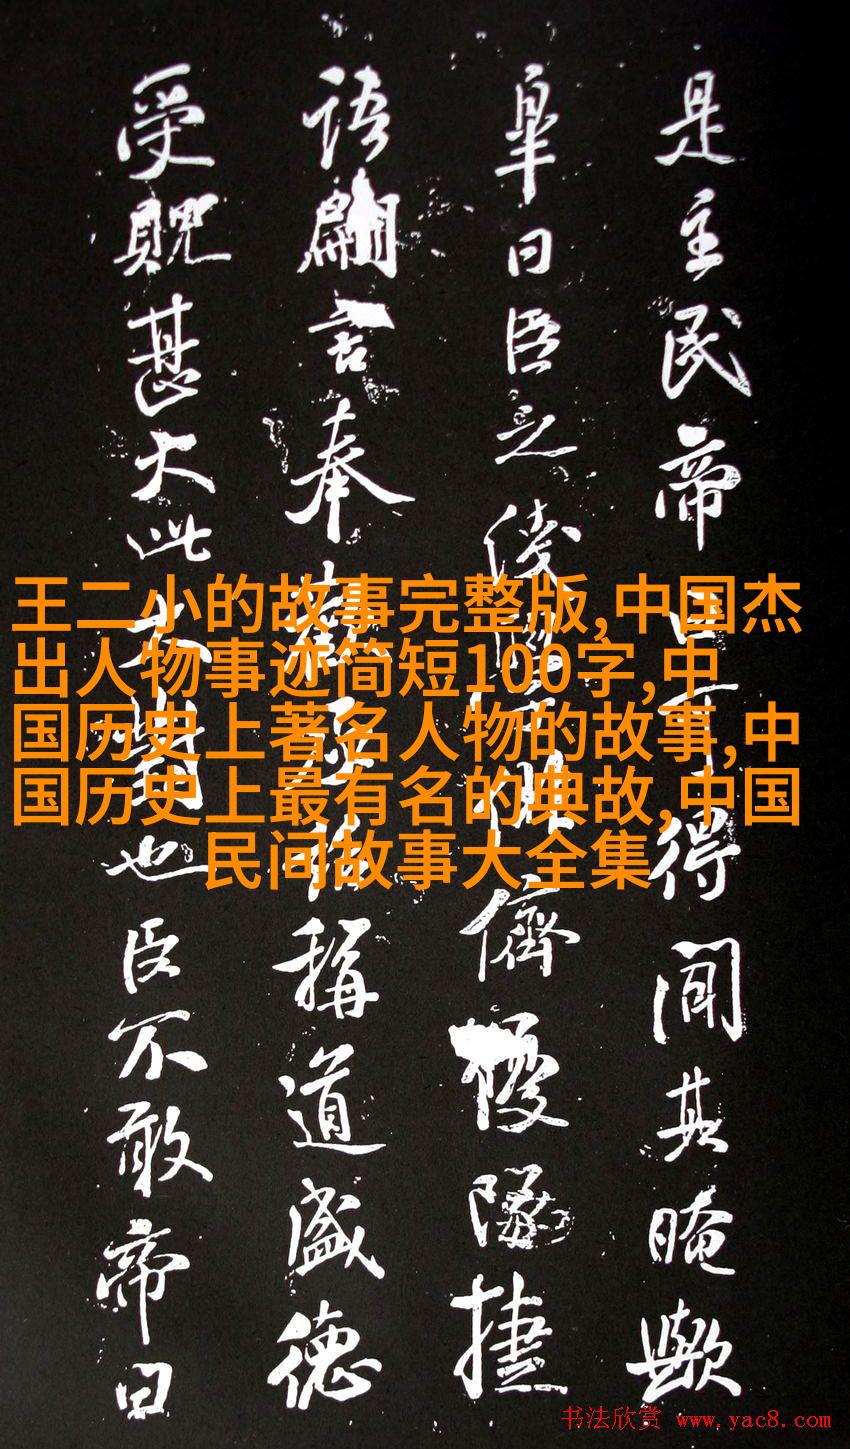 是主民帝得聞其晻歟
皐曰臣之儕優隊捷
語言奉稱道盛德
受貺甚大此也臣不敢帝曰
王二小的故事完整版,中国杰
出人物事迹简短100字,中
国历史上著名人物的故事,中
国历史上最有名的典故,中国
民间故事大全集
书法欣赏 www.yac8.com